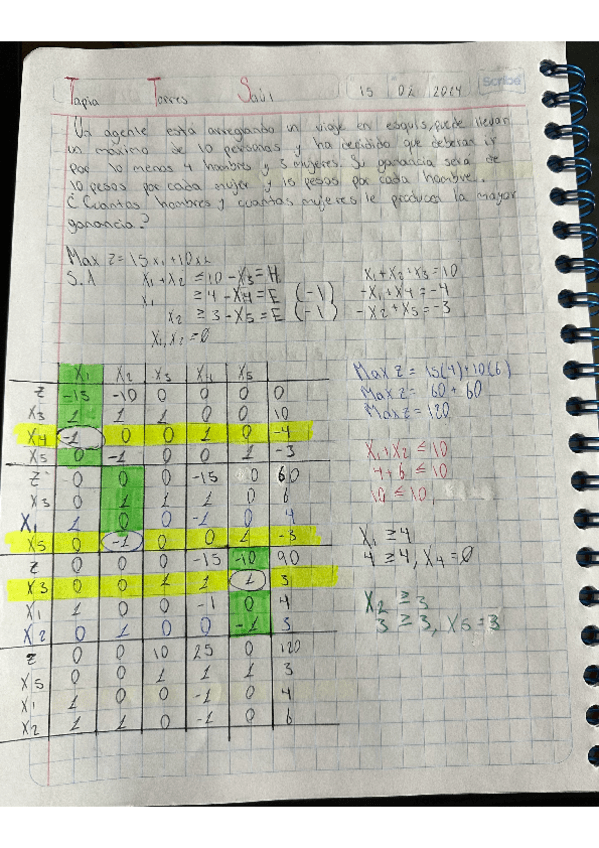 Tapia Torres Saúl 15 02 2024 Scribe
Un agente está arreglando un viaje en esquís, puede llevar
un máximo de 10 personas y ha decidido que deberan ir
por lo menos 4 hombres y 3 mujeres. Su ganancia sera de
10 pesos por cada mujer y 15 pesos por cada hombre.
¿Cuantos hombres y cuantas mujeres le producen la mayor
ganancia?
Max Z = 15x1 + 10x2
S.A X1 + X2 ≤ 10 - X3 = H X1 + X2 + X3 = 10
X1 ≥ 4 - X4 = E (-1) -X1 + X4 = -4
X2 ≥ 3 - X5 = E (-1) -X2 + X5 = -3
X1, X2 = 0
X1 X2 X3 X4 X5
Z -15 -10 0 0 0 0
X3 1 1 1 0 0 10
X4 -1 0 0 1 0 -4
X5 0 -1 0 0 1 -3
Z 0 0 0 -15 0 60
X3 0 1 1 1 0 6
X1 1 0 0 -1 0 4
X5 0 -1 0 0 1 -3
Z 0 0 0 -15 -10 90
X3 0 0 1 1 1 3
X1 1 0 0 -1 0 4
X2 0 1 0 0 -1 3
Z 0 0 10 25 0 120
X5 0 0 1 1 1 3
X1 1 0 0 -1 0 4
X2 1 1 0 -1 0 6
Max Z = 15(4) + 10(6)
Max Z = 60 + 60
Max Z = 120
X1 + X2 ≤ 10
4 + 6 ≤ 10
10 ≤ 10
X1 ≥ 4
4 ≥ 4, X4 = 0
X2 ≥ 3
3 ≥ 3, X5 = 3